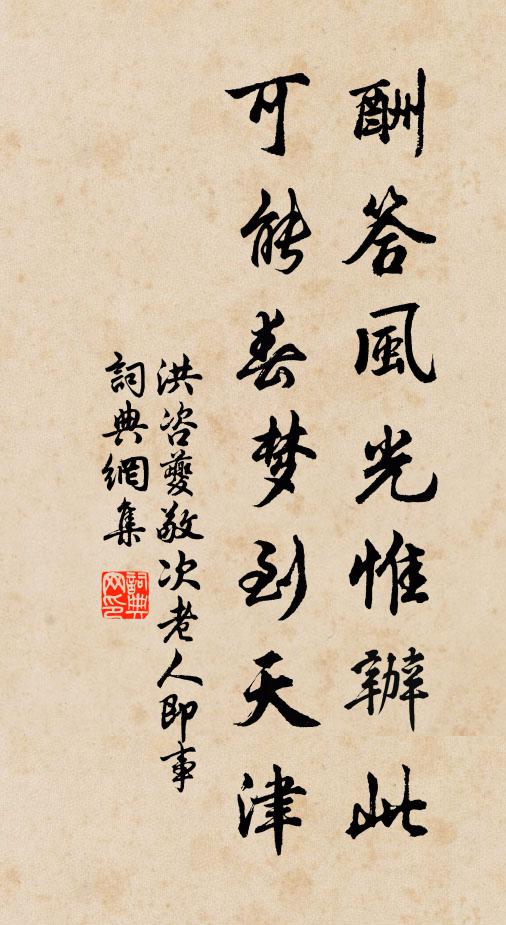 酬答風光惟辦此
可能春梦到天津
洪咨夔敬次老人即事
詞典網集
詞典网印